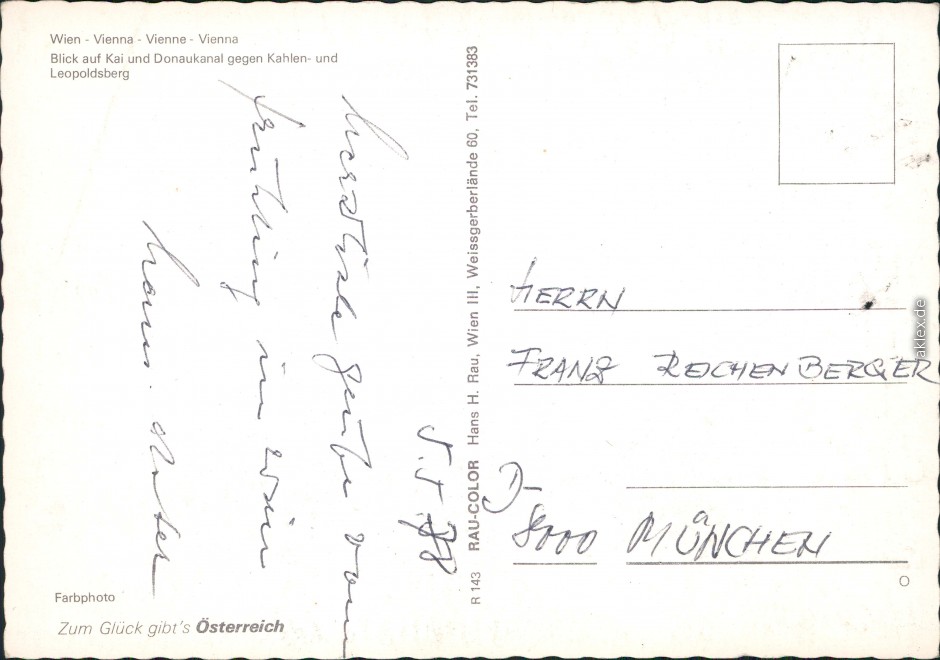 Wien - Vienna - Vienne - Vienna
Blick auf Kai und Donaukanal gegen Kahlen- und
Leopoldsberg
5.5.78
herzliche grüße vom
frühling in wien
hans
Farbphoto
Zum Glück gibt's Österreich
R 143 RAU-COLOR Hans H. Rau, Wien III, Weissgerberlände 60, Tel. 731383
HERRN
FRANZ REICHENBERGER
D-
8000 MÜNCHEN
aklex.de